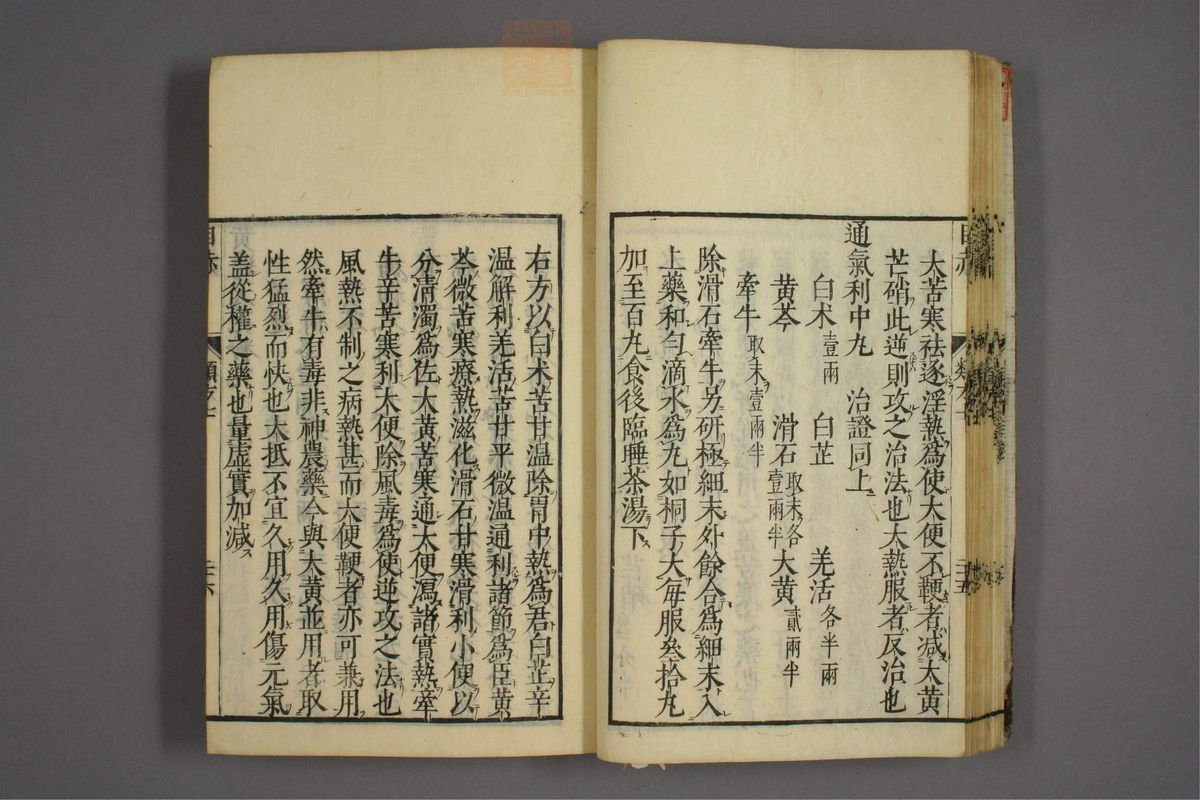 大苦寒祛逐淫熱爲使大便不鞕者减大黄
芒硝此逆則攻之治法也大熱服者反治也
通氣利中丸　治證同上
白朮壹兩　白芷　羌活各半兩
黄芩　滑石取末各壹兩半　大黄貳兩半
牽牛取末壹兩半
除滑石牽牛另研極細末外餘合爲細末入
上藥和勻滴水爲丸如桐子大每服叁拾丸
加至百丸食後臨睡茶湯下
右方以白朮苦甘温除胃中熱爲君白芷辛
温解利羌活苦甘平微温通利諸節爲臣黄
芩微苦寒療熱滋化滑石甘寒滑利小便以
分清濁爲佐大黄苦寒通大便瀉諸實熱牽
牛辛苦寒利大便除風毒爲使逆攻之法也
風熱不制之病熱甚而大便鞕者亦可兼用
然牽牛有毒非神農藥今與大黄並用者取
性猛烈而快也大抵不宜久用久用傷元氣
盖從權之藥也量虚實加减